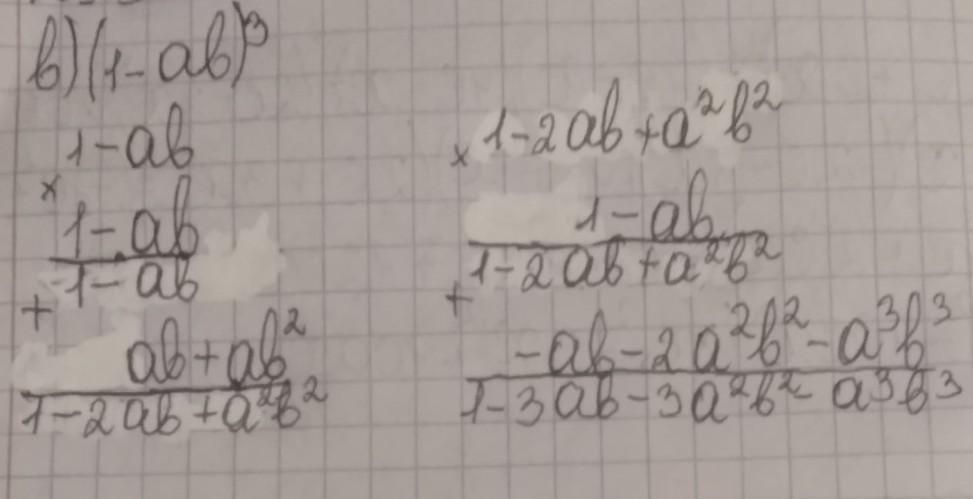 b) (1-ab)³
1-ab
×
1-ab
1-ab
+
ab+ab²
1-2ab+a²b²
× 1-2ab+a²b²
1-ab
1-2ab+a²b²
+
-ab-2a²b²-a³b³
1-3ab-3a²b²-a³b³